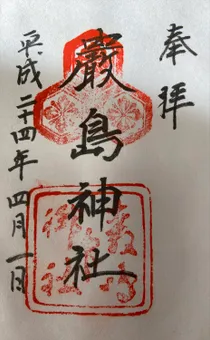 奉拝
嚴島神社
平成二十四年四月一日